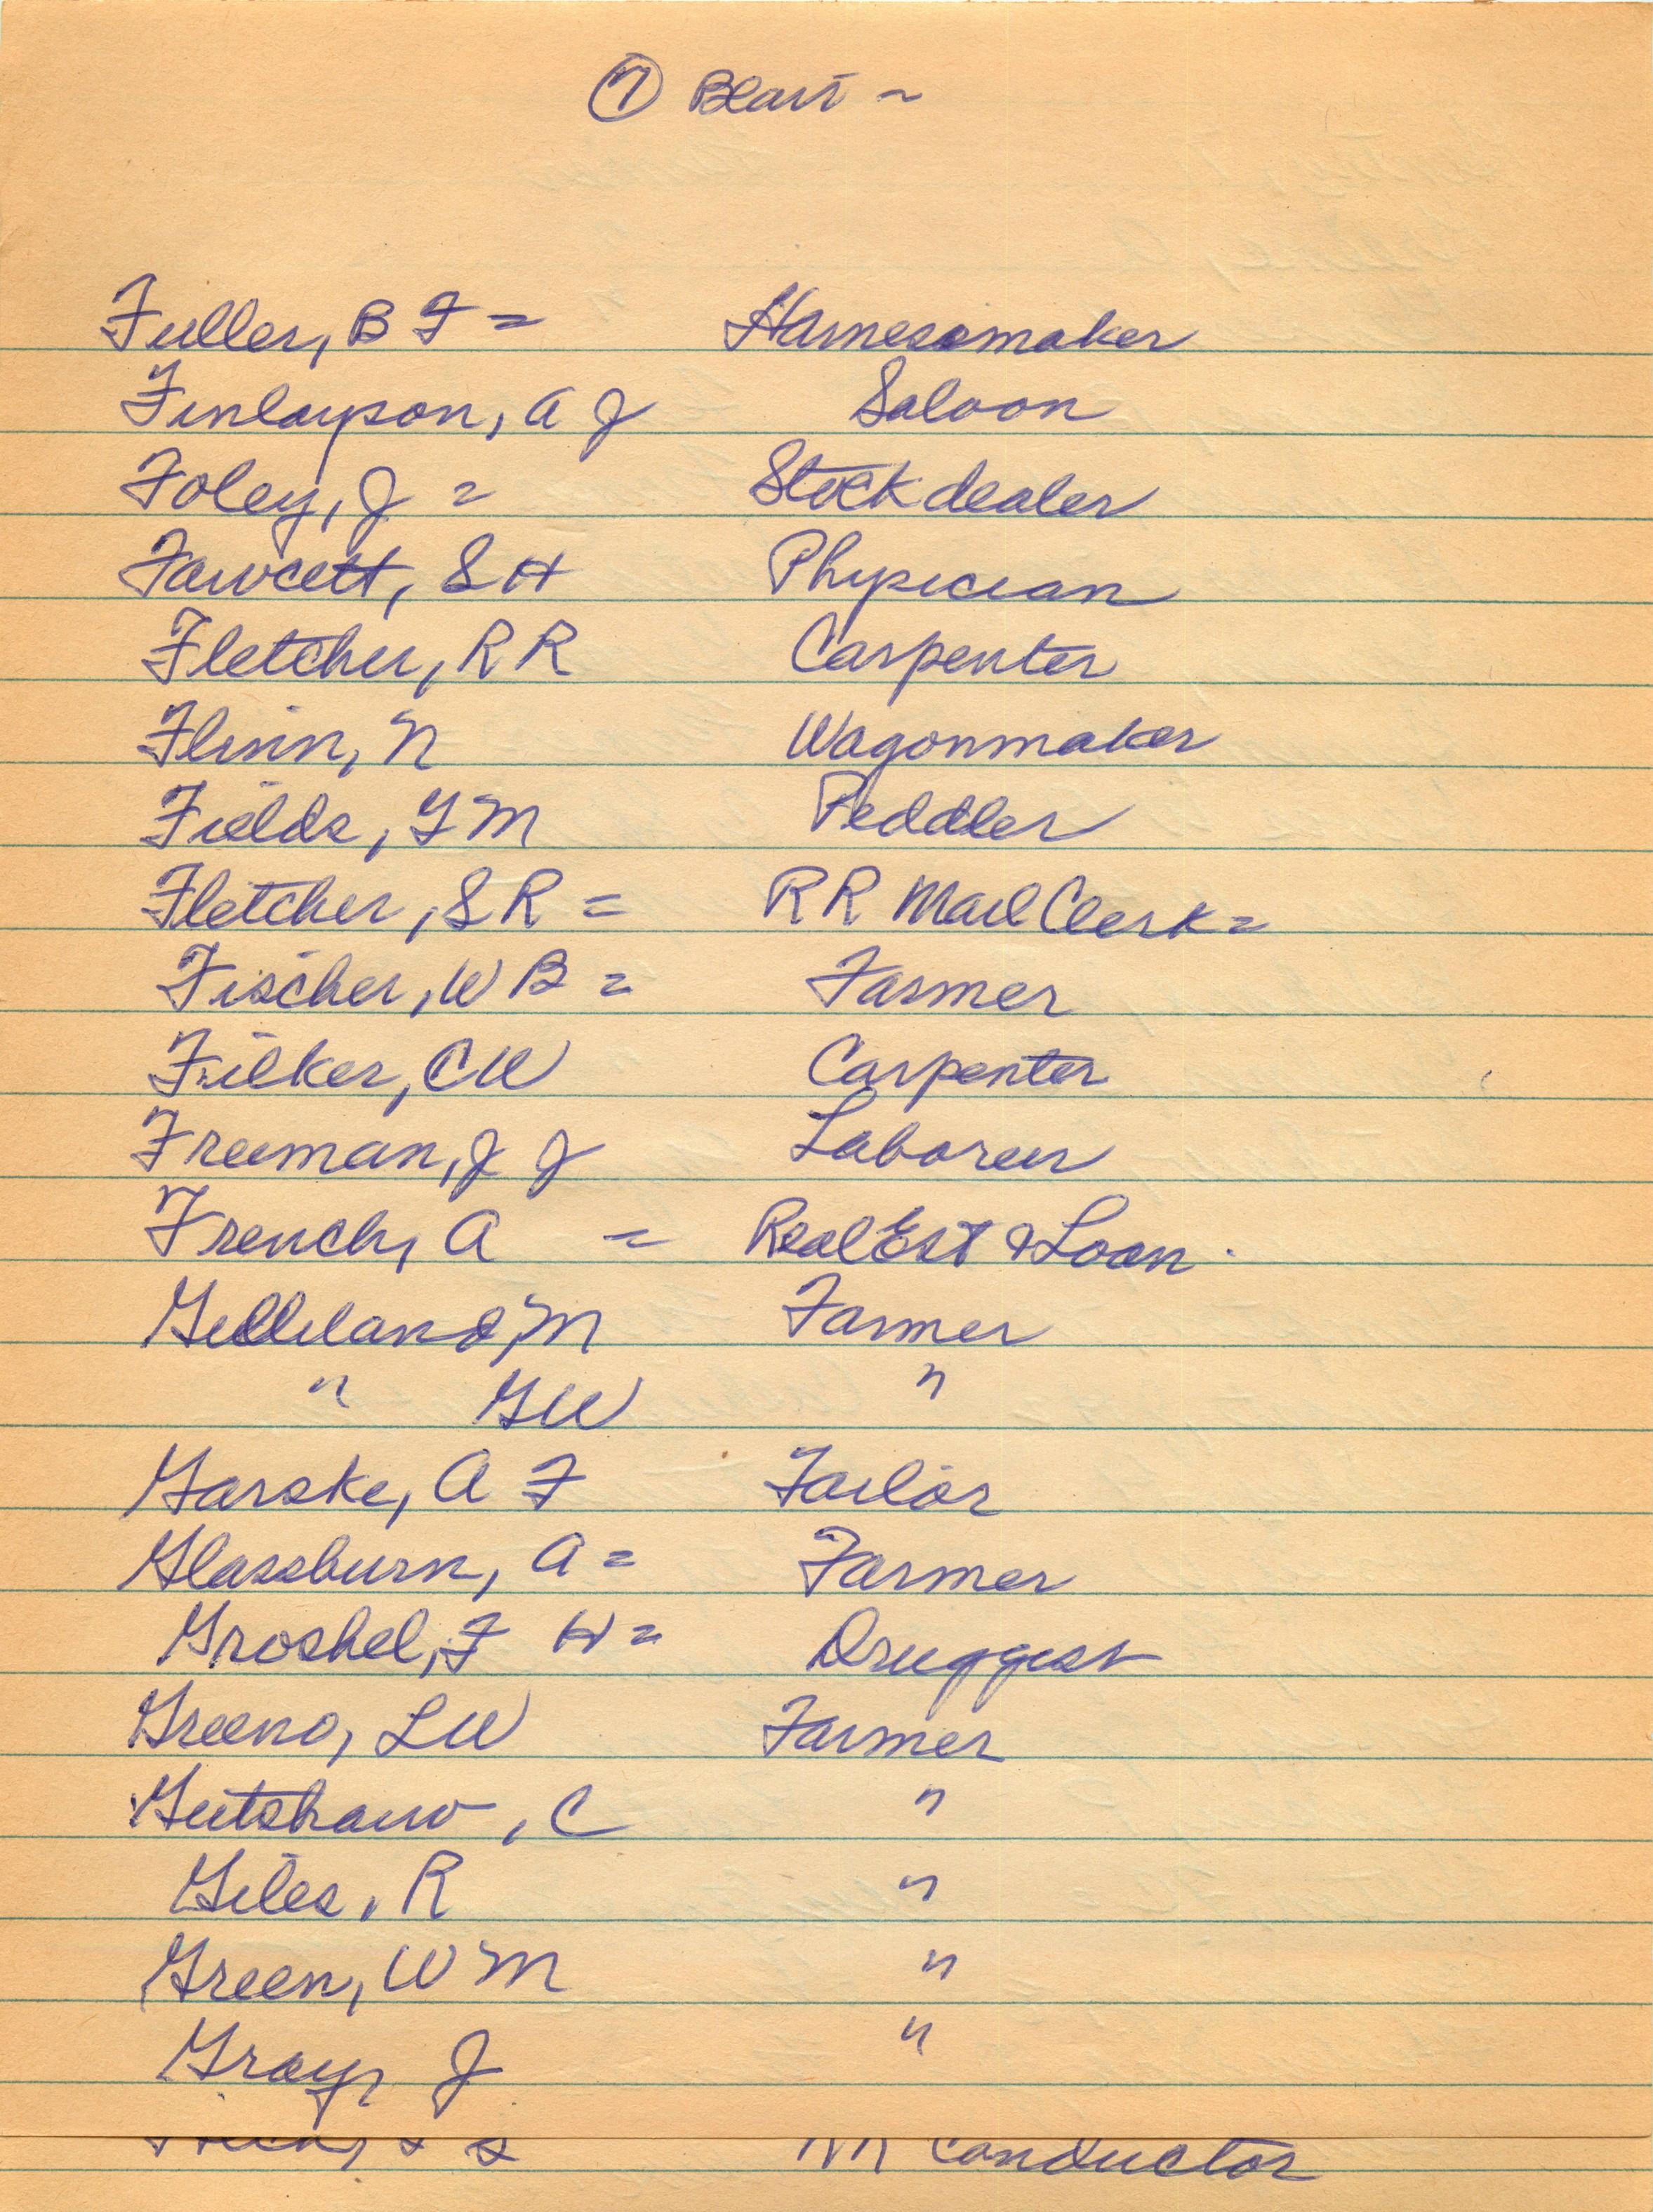 ⑦ Blair ~
Fuller, B F = Harnessmaker
Finlayson, A J Saloon
Foley, J = Stockdealer
Fawcett, S H Physician
Fletcher, R R Carpenter
Flinn, N Wagonmaker
Fields, G M Peddler
Fletcher, S R = RR Mail Clerk =
Fischer, W B = Farmer
Filker, C W Carpenter
Freeman, J J Laborer
French, A = Real Est & Loan.
Gilliland, M Farmer
" G W "
Garske, A F Tailor
Glassburn, A = Farmer
Groshel, F H = Druggist
Greeno, L W Farmer
Gutshaw, C "
Giles, R "
Green, W M "
Gray, J "
RR Conductor